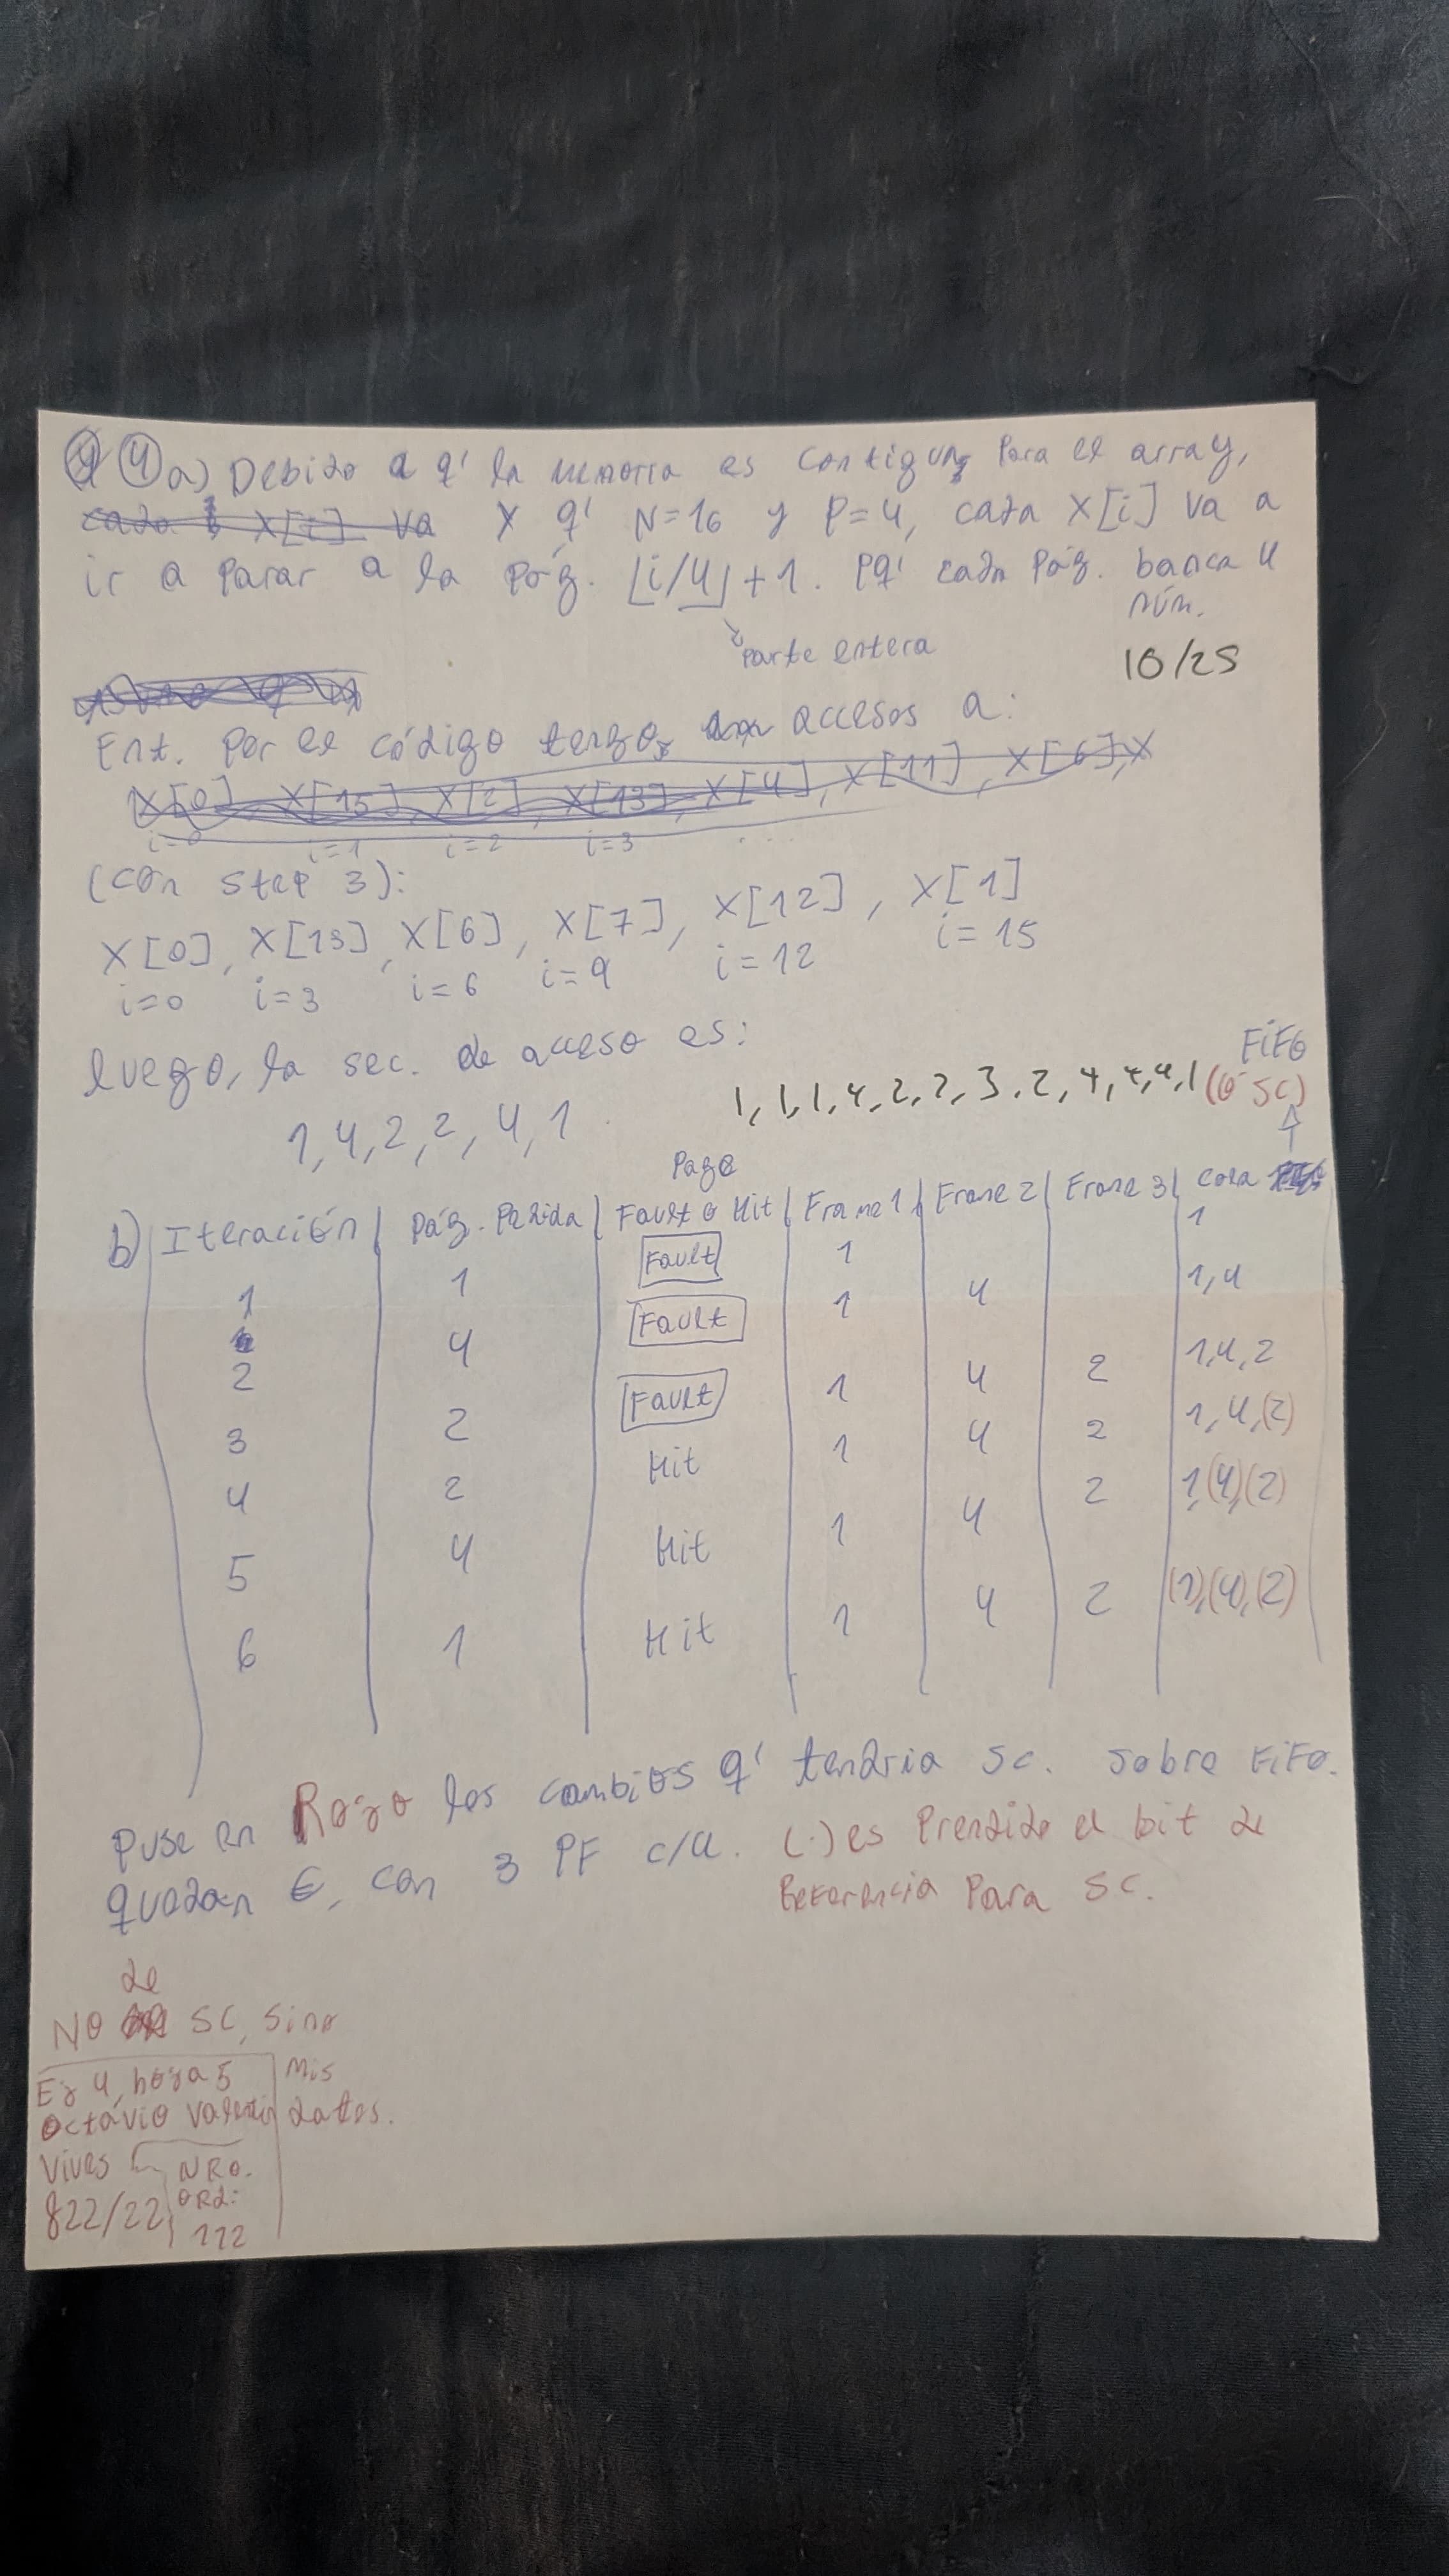 ④ a) Debido a q' la memoria es contigua para el array,
cada X[i] va Y q' N=16 y P=4, cada X[i] va a
ir a parar a la pág. ⌊i/4⌋+1. Pq' cada pág. banca 4
núm.
parte entera
10/25
Ent. por el código tengo accesos a:
X[0], X[15], X[2], X[13], X[4], X[11], X[6], X
i=0 i=1 i=2 i=3 ...
(con step 3):
X[0], X[13], X[6], X[7], X[12], X[1]
i=0 i=3 i=6 i=9 i=12 i=15
luego, la sec. de acceso es:
1,4,2,2,4,1.
1,1,1,4,2,2,3,2,4,4,4,1
FiFO
(o SC)
b) Iteración | Pág. Pedida | Page Fault o Hit | Frame 1 | Frame 2 | Frame 3 | cola
1 1 Fault 1 1
2 4 Fault 1 4 1,4
3 2 Fault 1 4 2 1,4,2
4 2 Hit 1 4 2 1,4,(2)
5 4 Hit 1 4 2 1,(4),(2)
6 1 Hit 1 4 2 (1),(4),(2)
Puse en Rojo los cambios q' tendria SC. sobre FiFO.
quedan =, con 3 PF c/u. (·) es Prendido el bit de
Referencia Para SC.
NO de SC, sino
mis
datos.
Ej 4, hoja 5
Octavio Valentin
Vives
822/22
NRO.
ORd:
112